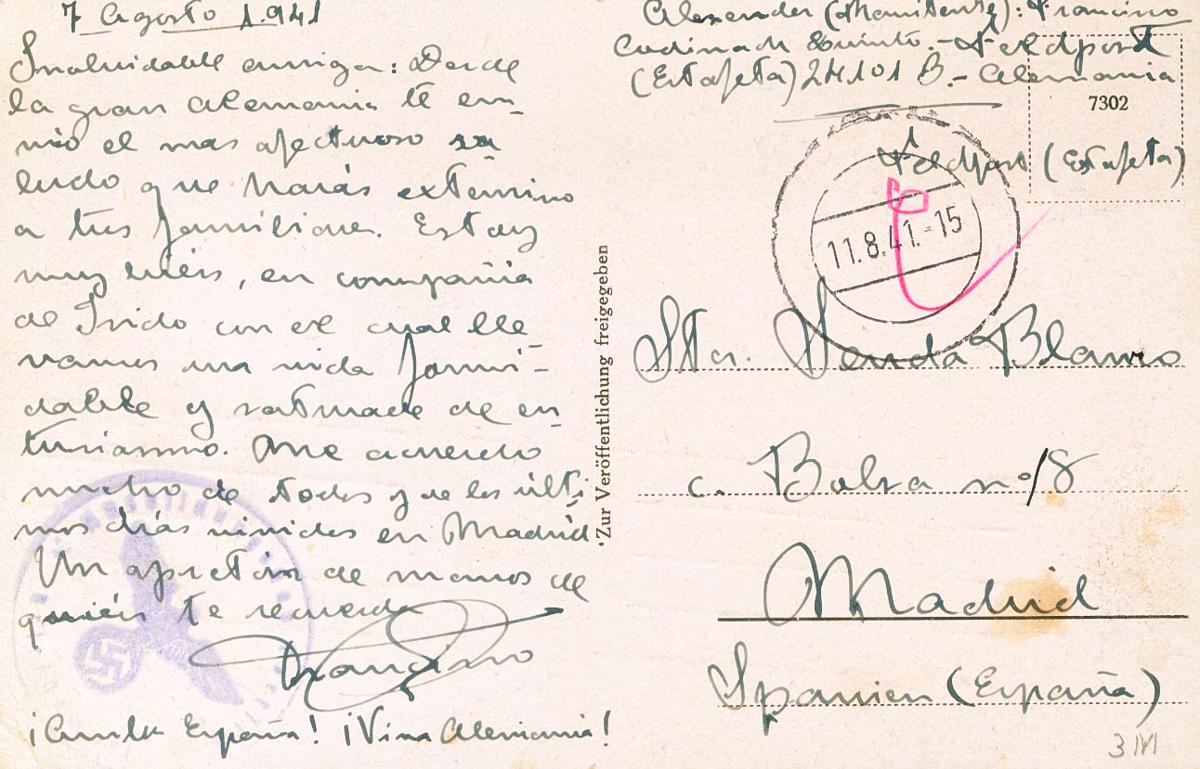 7 Agosto 1.941
Inolvidable amiga: Desde
la gran Alemania te en-
vio el mas afectuoso sa
ludo que harás extensivo
a tus familiares. Estoy
muy bién, en compañia
de Isido con el cual lle
vamos una vida formi-
dable y saturada de en-
tusiasmo. Me acuerdo
mucho de todos y de los ulti
mos días vividos en Madrid.
Un apretón de manos de
quién te recuerda
Francisco
¡Arriba España! ¡Viva Alemania!
Zur Veröffentlichung freigegeben
(Remitente): Francisco
Codina de Quinto.- Feldpost
(Estafeta) 24101 B.- Alemania
7302
Feldpost (Estafeta)
11.8.41.-15
Sta. Blanco
c. Bolsa nº/8
Madrid
Spanien (España)